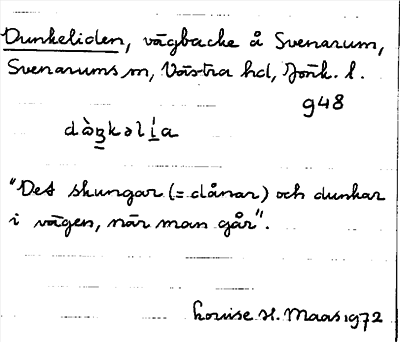 Dunkeliden, vägbacke å Svenarum,
Svenarums sn, Västra hd, Jönk. l.
948
"Det skungar (= dånar) och dunkar
i vägen, när man går".
Louise H. Maas 1972